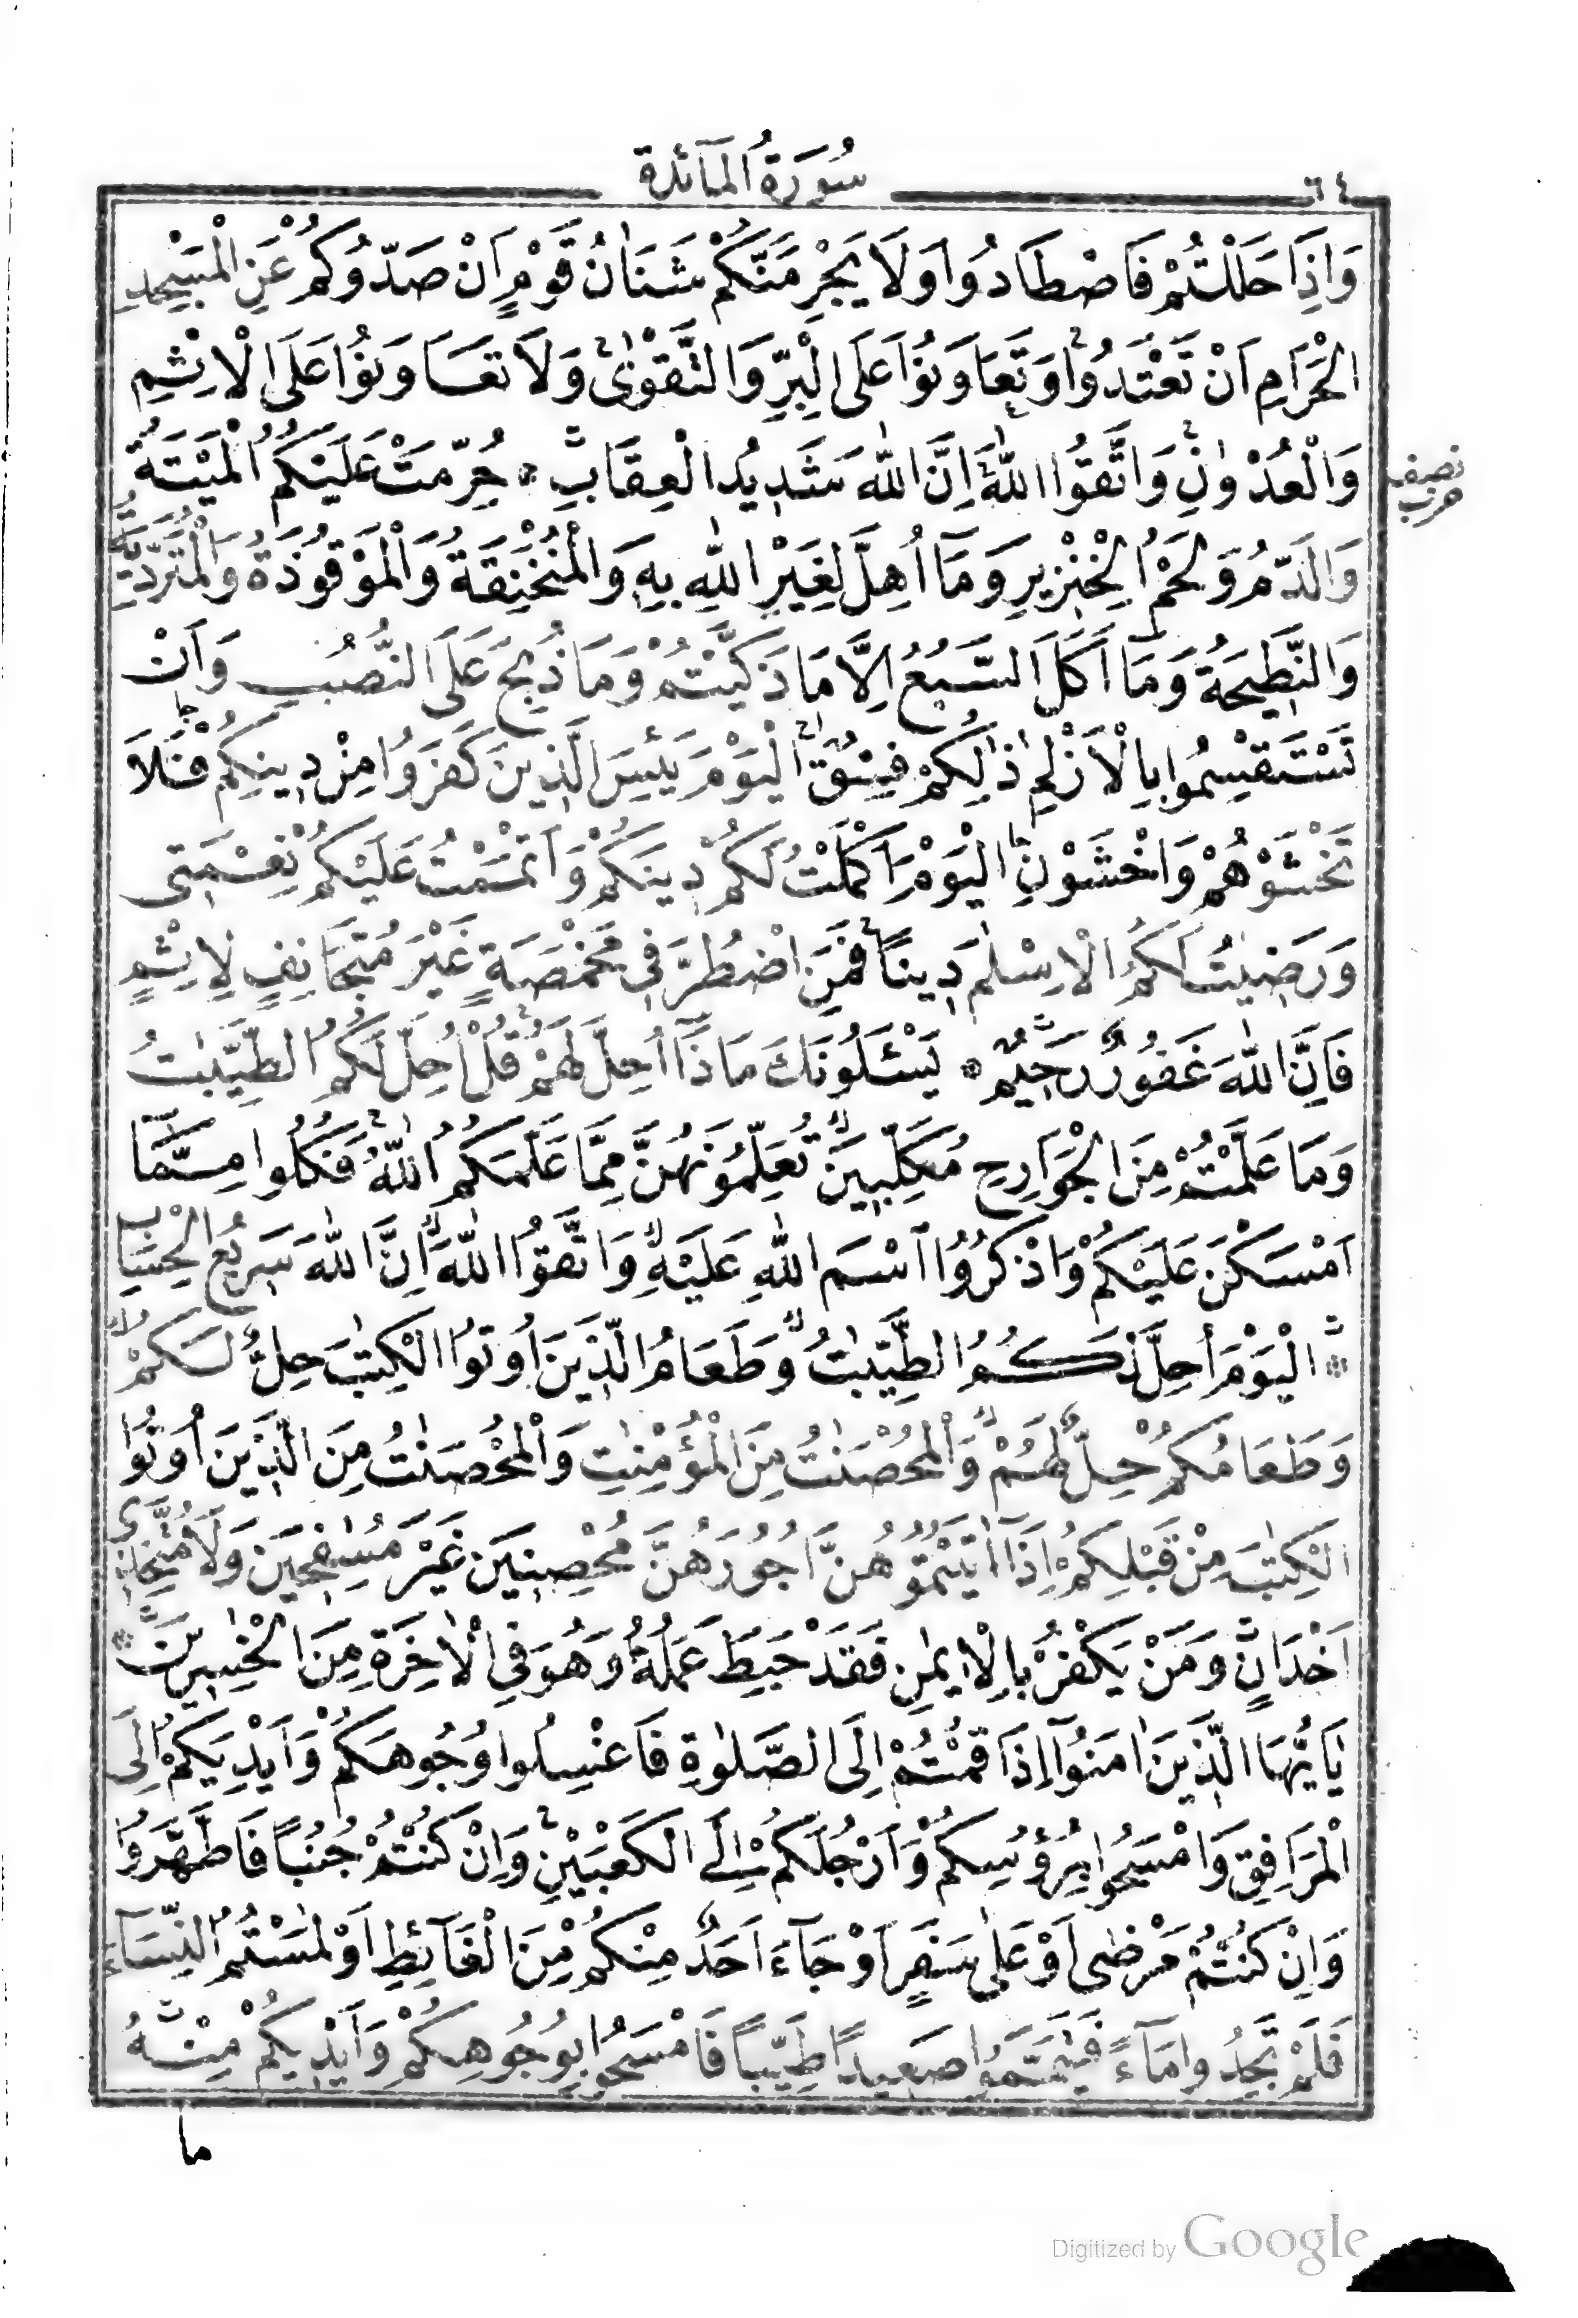 ٦٤
سُورَةُ الْمَآئِدَةِ
وَاِذَا حَلَلْتُمْ فَاصْطَادُوا وَلَا يَجْرِمَنَّكُمْ شَنَاٰنُ قَوْمٍ اَنْ صَدُّوكُمْ عَنِ الْمَسْجِدِ
الْحَرَامِ اَنْ تَعْتَدُواۘ وَتَعَاوَنُوا عَلَى الْبِرِّ وَالتَّقْوٰى وَلَا تَعَاوَنُوا عَلَى الْاِثْمِ
وَالْعُدْوٰنِ وَاتَّقُوا اللّٰهَ اِنَّ اللّٰهَ شَدِيدُ الْعِقَابِ ۞ حُرِّمَتْ عَلَيْكُمُ الْمَيْتَةُ
نصف
حزب
وَالدَّمُ وَلَحْمُ الْخِنْزِيرِ وَمَآ اُهِلَّ لِغَيْرِ اللّٰهِ بِهِ وَالْمُنْخَنِقَةُ وَالْمَوْقُوذَةُ وَالْمُتَرَدِّيَةُ
وَالنَّطِيحَةُ وَمَآ اَكَلَ السَّبُعُ اِلَّا مَا ذَكَّيْتُمْ وَمَا ذُبِحَ عَلَى النُّصُبِ وَاَنْ
تَسْتَقْسِمُوا بِالْاَزْلٰمِ ذٰلِكُمْ فِسْقٌ اَلْيَوْمَ يَئِسَ الَّذِينَ كَفَرُوا مِنْ دِينِكُمْ فَلَا
تَخْشَوْهُمْ وَاخْشَوْنِ اَلْيَوْمَ اَكْمَلْتُ لَكُمْ دِينَكُمْ وَاَتْمَمْتُ عَلَيْكُمْ نِعْمَتِى
وَرَضِيتُ لَكُمُ الْاِسْلٰمَ دِينًا فَمَنِ اضْطُرَّ فِى مَخْمَصَةٍ غَيْرَ مُتَجَانِفٍ لِاِثْمٍ
فَاِنَّ اللّٰهَ غَفُورٌ رَحِيمٌ ۞ يَسْـَٔلُونَكَ مَاذَآ اُحِلَّ لَهُمْ قُلْ اُحِلَّ لَكُمُ الطَّيِّبٰتُ
وَمَا عَلَّمْتُمْ مِنَ الْجَوَارِحِ مُكَلِّبِينَ تُعَلِّمُونَهُنَّ مِمَّا عَلَّمَكُمُ اللّٰهُ فَكُلُوا مِمَّآ
اَمْسَكْنَ عَلَيْكُمْ وَاذْكُرُوا اسْمَ اللّٰهِ عَلَيْهِ وَاتَّقُوا اللّٰهَ اِنَّ اللّٰهَ سَرِيعُ الْحِسَابِ
۞ اَلْيَوْمَ اُحِلَّ لَكُمُ الطَّيِّبٰتُ وَطَعَامُ الَّذِينَ اُوتُوا الْكِتٰبَ حِلٌّ لَكُمْ
وَطَعَامُكُمْ حِلٌّ لَهُمْ وَالْمُحْصَنٰتُ مِنَ الْمُؤْمِنٰتِ وَالْمُحْصَنٰتُ مِنَ الَّذِينَ اُوتُوا
الْكِتٰبَ مِنْ قَبْلِكُمْ اِذَآ اٰتَيْتُمُوهُنَّ اُجُورَهُنَّ مُحْصِنِينَ غَيْرَ مُسٰفِحِينَ وَلَا مُتَّخِذِىٓ
اَخْدَانٍ وَمَنْ يَكْفُرْ بِالْاِيمٰنِ فَقَدْ حَبِطَ عَمَلُهُ وَهُوَ فِى الْاٰخِرَةِ مِنَ الْخٰسِرِينَ ۞
يَٓا اَيُّهَا الَّذِينَ اٰمَنُوآ اِذَا قُمْتُمْ اِلَى الصَّلٰوةِ فَاغْسِلُوا وُجُوهَكُمْ وَاَيْدِيَكُمْ اِلَى
الْمَرَافِقِ وَامْسَحُوا بِرُؤُسِكُمْ وَاَرْجُلَكُمْ اِلَى الْكَعْبَيْنِ وَاِنْ كُنْتُمْ جُنُبًا فَاطَّهَّرُوا
وَاِنْ كُنْتُمْ مَرْضٰى اَوْ عَلٰى سَفَرٍ اَوْ جَآءَ اَحَدٌ مِنْكُمْ مِنَ الْغَآئِطِ اَوْ لٰمَسْتُمُ النِّسَآءَ
فَلَمْ تَجِدُوا مَآءً فَتَيَمَّمُوا صَعِيدًا طَيِّبًا فَامْسَحُوا بِوُجُوهِكُمْ وَاَيْدِيكُمْ مِنْهُ
ما
Digitized by Google